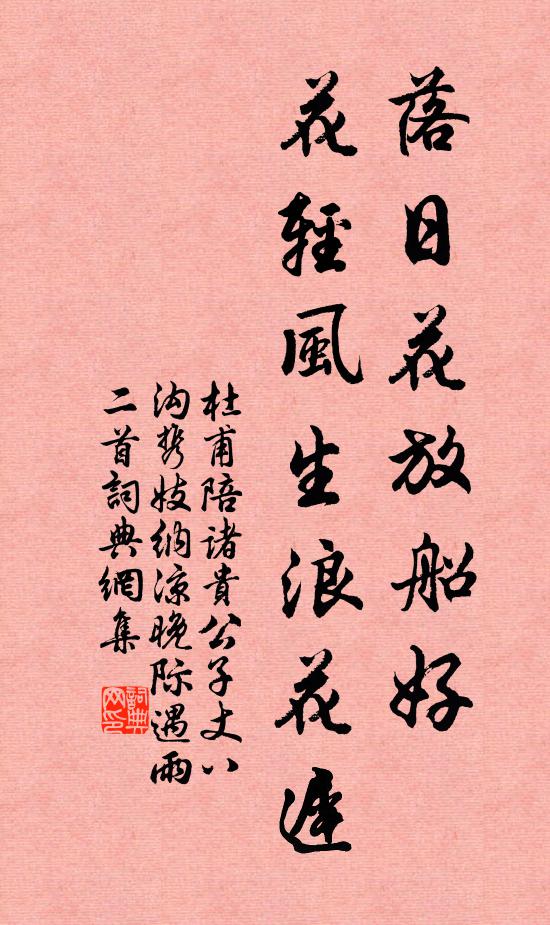 落日花放船好
花輕風生浪花遲
杜甫陪諸貴公子丈八
沟携妓納凉晚际遇雨
二首詞典網集
詞典網印